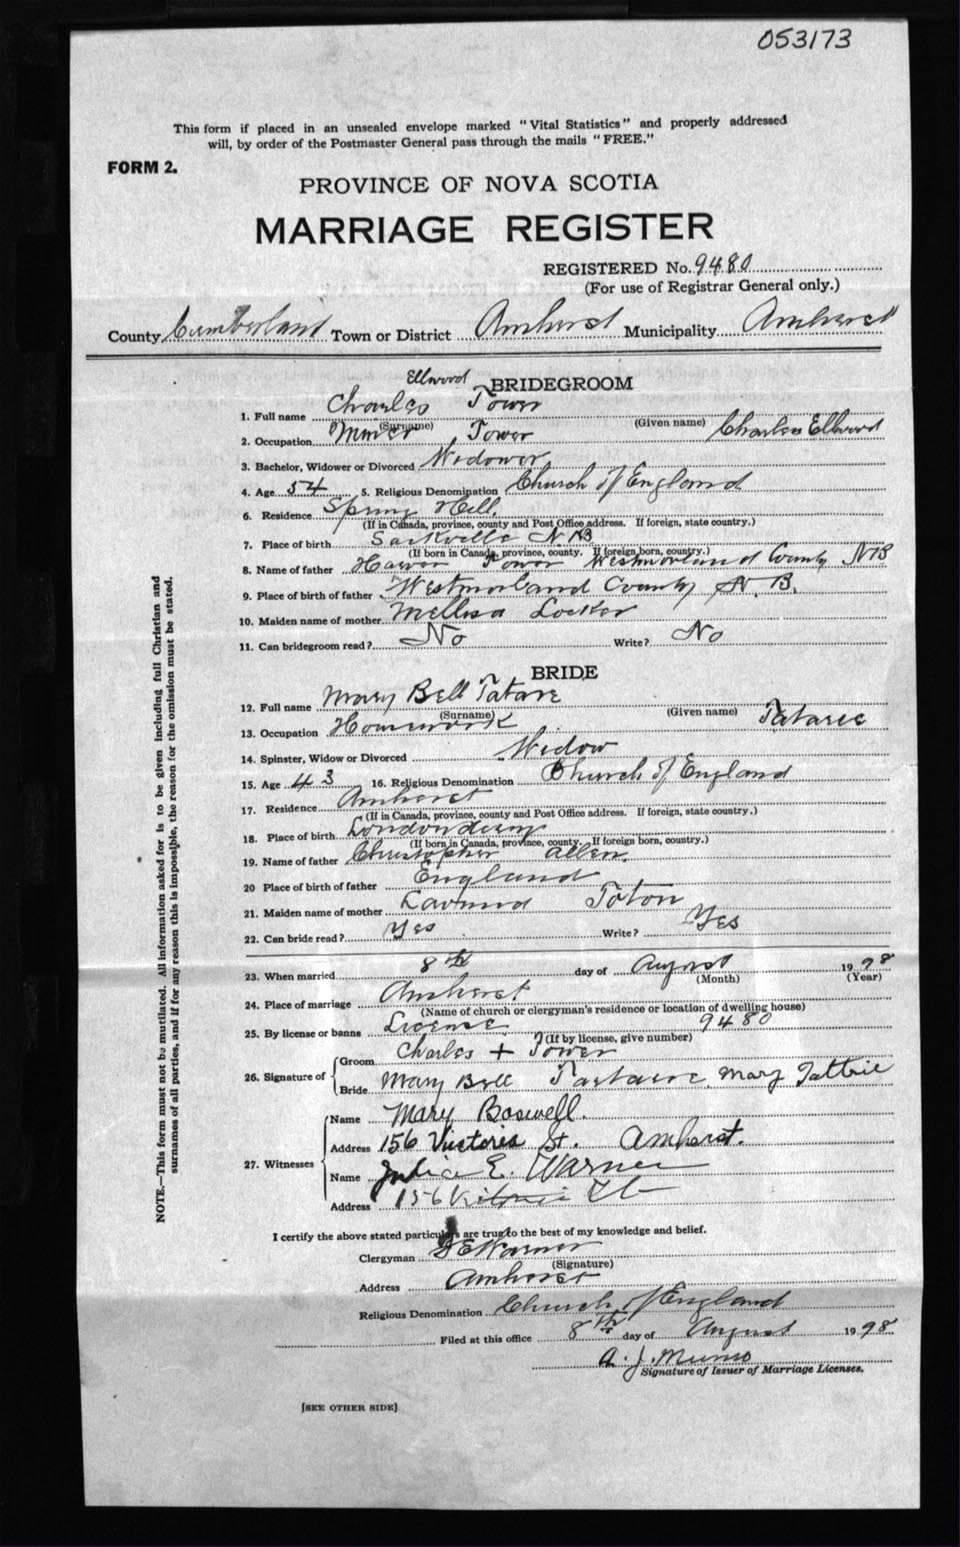 053173
This form if placed in an unsealed envelope marked "Vital Statistics" and properly addressed
will, by order of the Postmaster General pass through the mails "FREE."
FORM 2.
PROVINCE OF NOVA SCOTIA
MARRIAGE REGISTER
REGISTERED No. 9480
(For use of Registrar General only.)
County Cumberland Town or District Amherst Municipality Amherst
BRIDEGROOM
1. Full name Charles Ellwood Tower
(Surname) (Given name) Charles Ellwood
2. Occupation Miner Tower
3. Bachelor, Widower or Divorced Widower
4. Age 54 5. Religious Denomination Church of England
6. Residence Spring Hill
(If in Canada, province, county and Post Office address. If foreign, state country.)
7. Place of birth Sackville N.B
(If born in Canada, province, county. If foreign born, country.)
8. Name of father Tower Westmorland County NB
9. Place of birth of father Westmorland County N.B.
10. Maiden name of mother Mellisa
11. Can bridegroom read? No Write? No
BRIDE
12. Full name Mary Bell
(Surname) (Given name) Tatarie
13. Occupation Housework
14. Spinster, Widow or Divorced Widow
15. Age 43 16. Religious Denomination Church of England
17. Residence Amherst
(If in Canada, province, county and Post Office address. If foreign, state country.)
18. Place of birth Londonderry
(If born in Canada, province, county. If foreign born, country.)
19. Name of father Christopher Allen.
20 Place of birth of father England
21. Maiden name of mother Toton
22. Can bride read? Yes Write? Yes
23. When married 8th day of August 1998
(Month) (Year)
24. Place of marriage Amherst
(Name of church or clergyman's residence or location of dwelling house)
25. By license or banns License 9480
(If by license, give number)
26. Signature of
Groom Charles + Tower
Bride Mary Bell Mary Tattrie
27. Witnesses
Name Mary Boswell.
Address 156 Victoria St. Amherst.
Name Julia E. Warner
Address 156 Victoria St
I certify the above stated particulars are true to the best of my knowledge and belief.
Clergyman Warner
(Signature)
Address Amherst
Religious Denomination Church of England
Filed at this office 8th day of August 1998
A. J. Munro
Signature of Issuer of Marriage Licenses.
[SEE OTHER SIDE]
NOTE.—This form must not be mutilated. All information asked for is to be given including full Christian and
surnames of all parties, and if for any reason this is impossible, the reason for the omission must be stated.